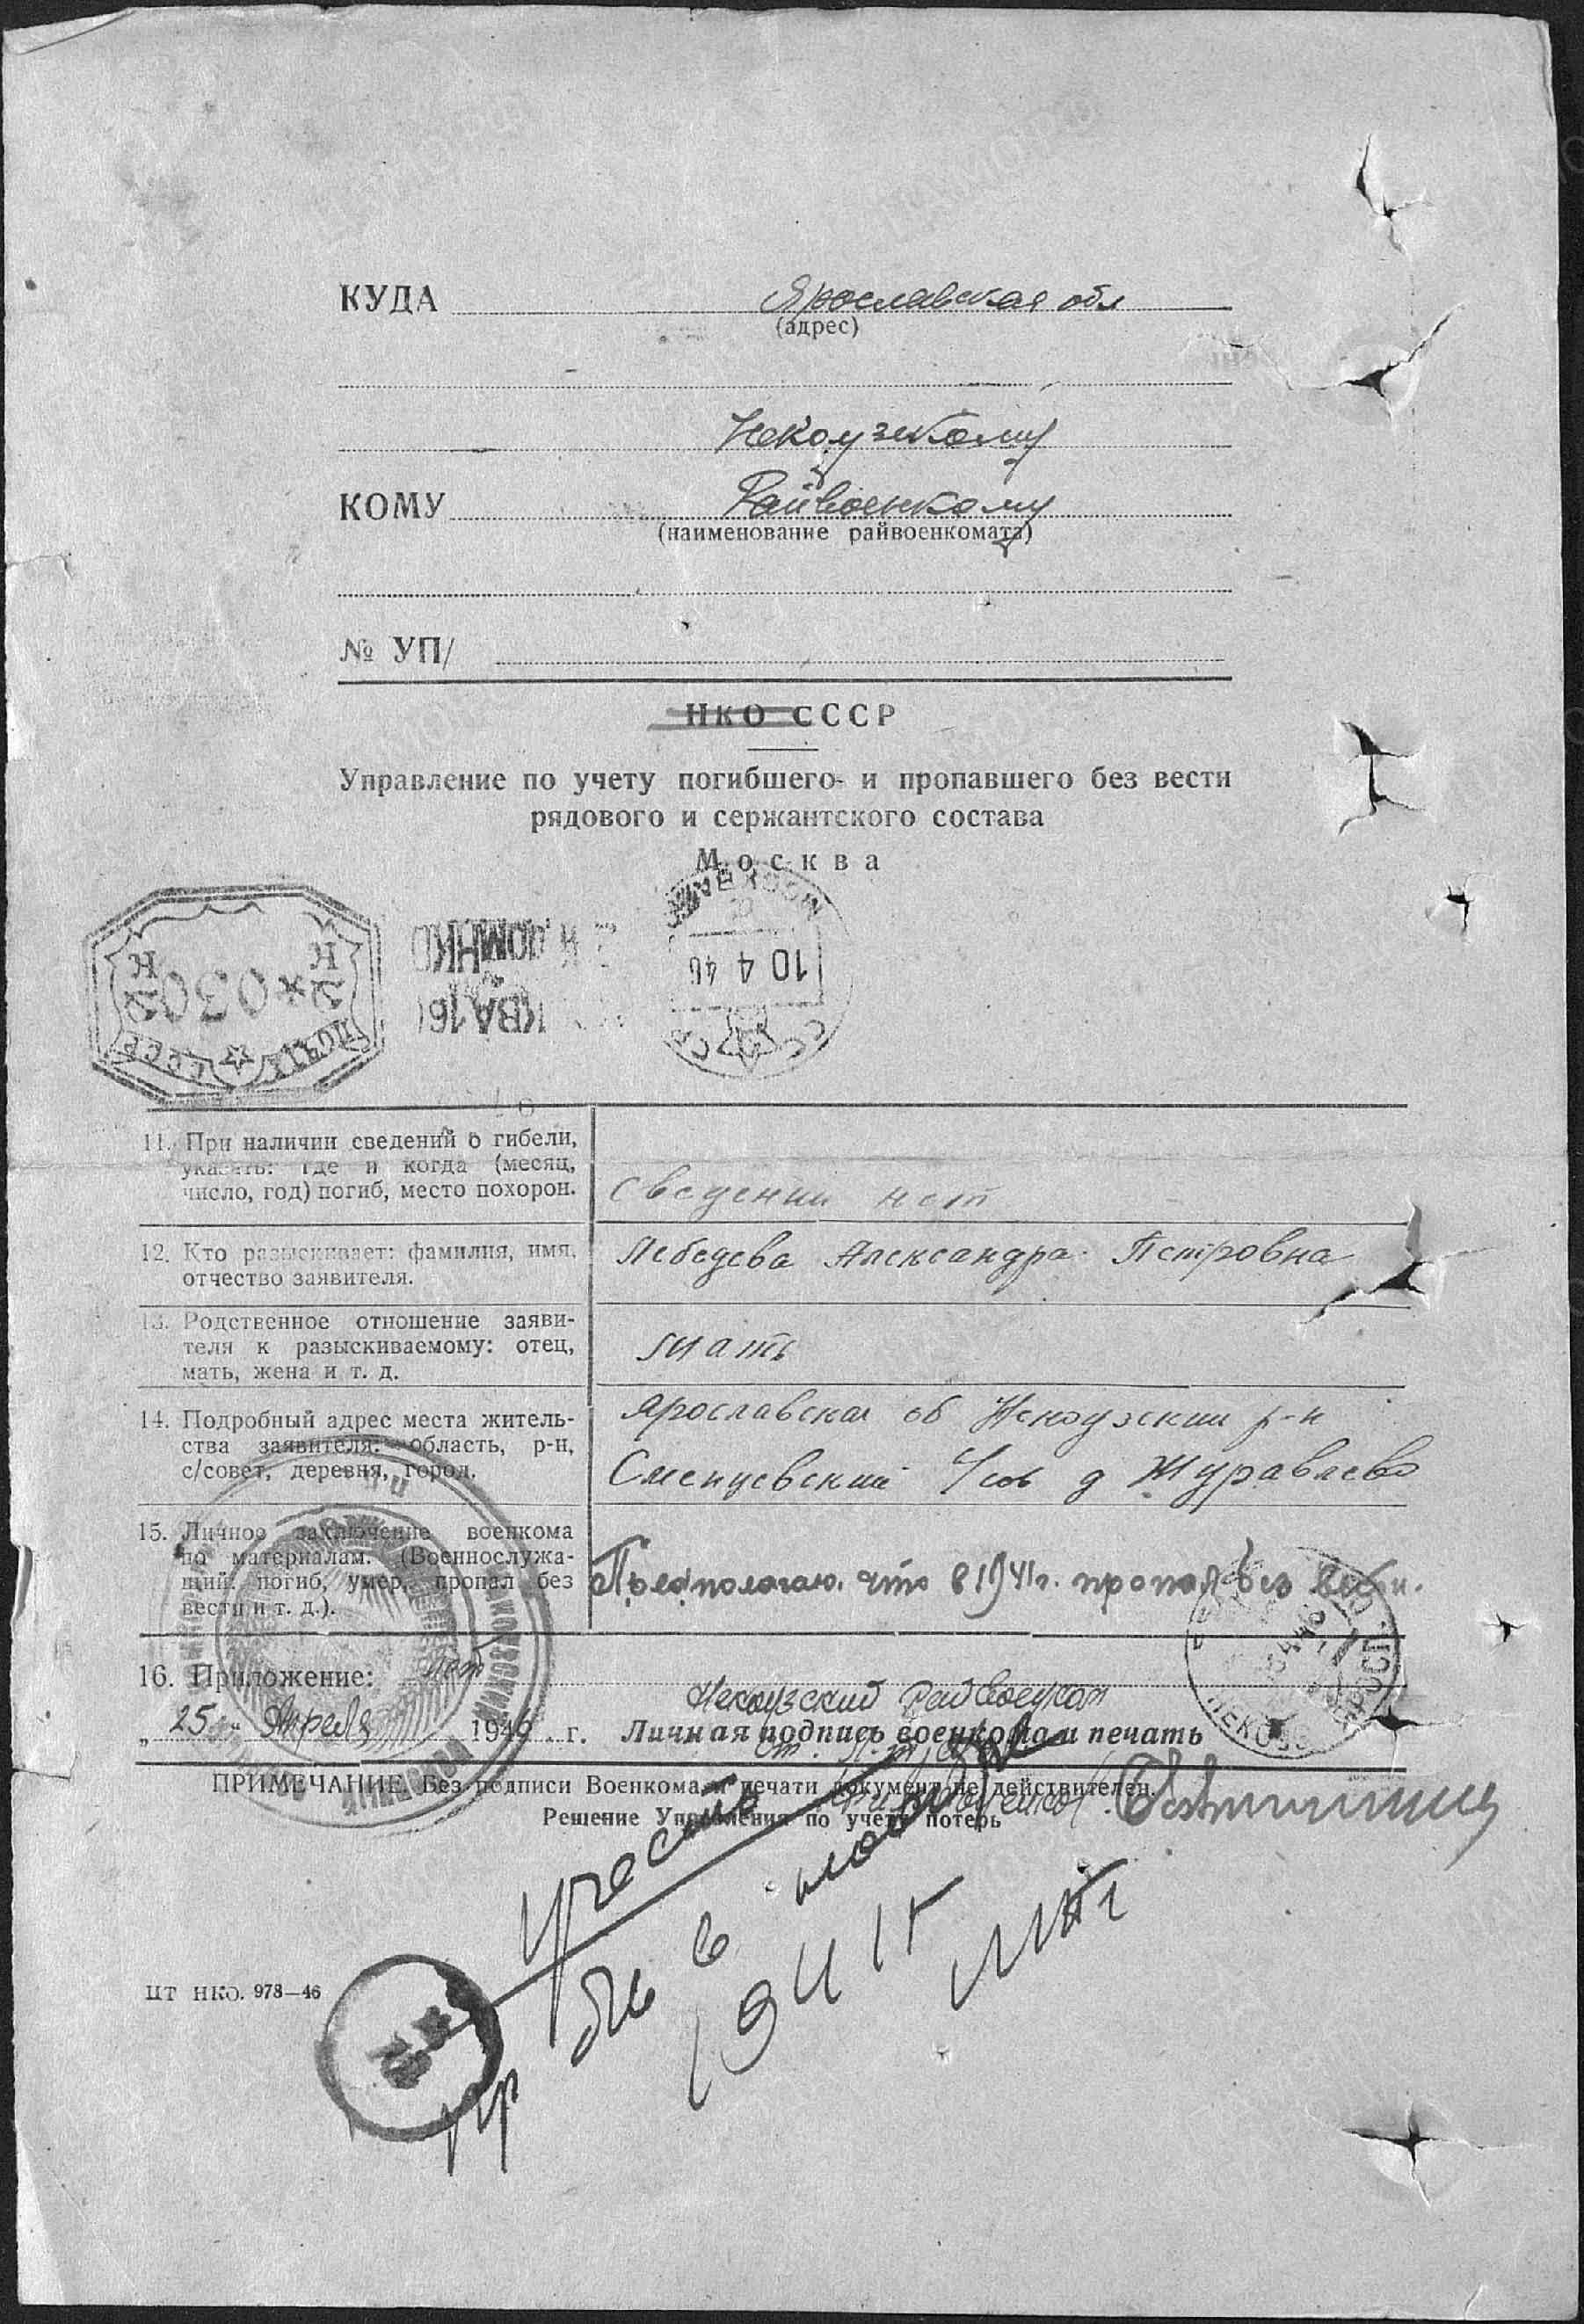 КУДА Ярославская обл
(адрес)
Некоузскому
КОМУ Райвоенкому
(наименование райвоенкомата)
№ УП/
НКО СССР
Управление по учету погибшего и пропавшего без вести
рядового и сержантского состава
Москва
МОСКВА
10 4 46
СССР
ПОЧТА СССР
К К
*030
11. При наличии сведений о гибели,
указать: где и когда (месяц,
число, год) погиб, место похорон.
Сведении нет
12. Кто разыскивает: фамилия, имя,
отчество заявителя.
Лебедева Александра Петровна
13. Родственное отношение заяви-
теля к разыскиваемому: отец,
мать, жена и т. д.
мать
14. Подробный адрес места житель-
ства заявителя: область, р-н,
с/совет, деревня, город.
Ярославская об Некоузскии р-н
Сменцевский с/сов д Журавлево
15. Личное заключение военкома
по материалам. (Военнослужа-
щий: погиб, умер, пропал без
вести и т. д.).
Предпологаю, что в 1941 г. пропал без вести.
16. Приложение: нет
Некоузский Райвоенком
„25" Апреля 1946 г. Личная подпись военкома и печать
ПРИМЕЧАНИЕ. Без подписи Военкома и печати документ не действителен.
Решение Управления по учету потерь
Учесть
пр б/в в ноябре
1941 г
ЦТ НКО. 978—46